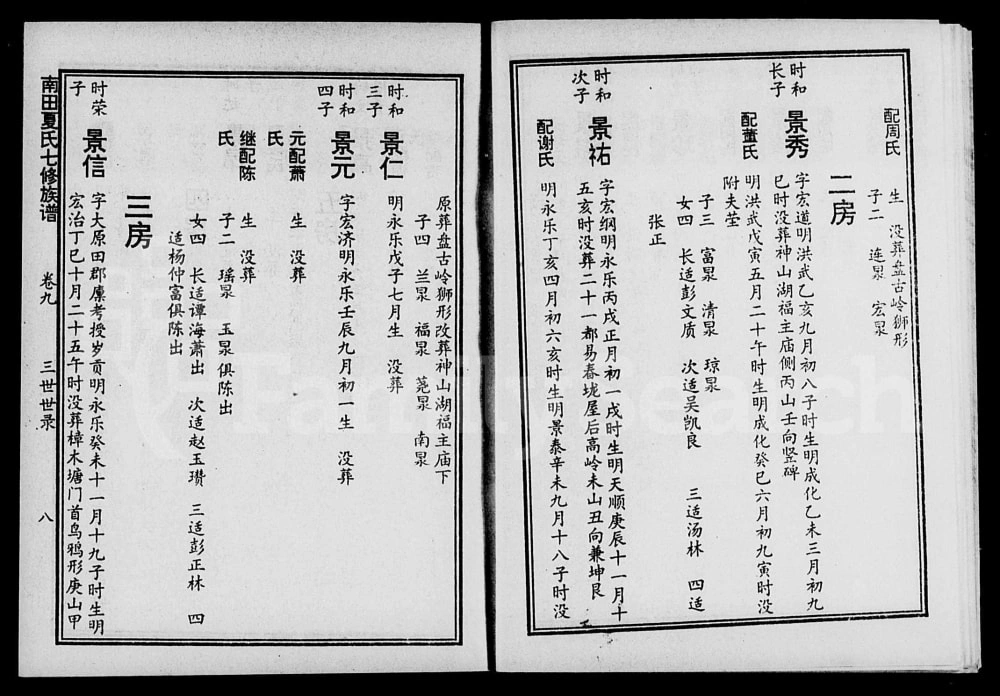 配周氏
生 没葬盘古岭狮形
子二 连杲 宏杲
二房
时和长子
景秀
字宏道明洪武乙亥九月初八子时生明成化乙未三月初九
巳时没葬神山湖福主庙侧丙山壬向竖碑
配董氏
明洪武戊寅五月二十午时生明成化癸巳六月初九寅时没
附夫茔
子三 富杲 清杲 琼杲
女四 长适彭文质 次适吴凯良 三适汤林 四适
张正
时和次子
景祐
字宏纲明永乐丙戌正月初一戌时生明天顺庚辰十一月十
五亥时没葬二十一都易春垅屋后高岭未山丑向兼坤艮
配谢氏
明永乐丁亥四月初六亥时生明景泰辛未九月十八子时没
原葬盘古岭狮形改葬神山湖福主庙下
子四 兰杲 福杲 蒐杲 南杲
时和三子
景仁
明永乐戊子七月生 没葬
时和四子
景元
字宏济明永乐壬辰九月初一生 没葬
元配萧氏
生 没葬
继配陈氏
生 没葬
子二 瑶杲 玉杲俱陈出
女四 长适谭海萧出 次适赵玉瓒 三适彭正林 四
适杨仲富俱陈出
三房
时荣子
景信
字大原田郡廪考授岁贡明永乐癸未十一月十九子时生明
宏治丁巳十月二十五午时没葬樟木塘门首鸟鸦形庚山甲
南田夏氏七修族谱
卷九
三世世录
八